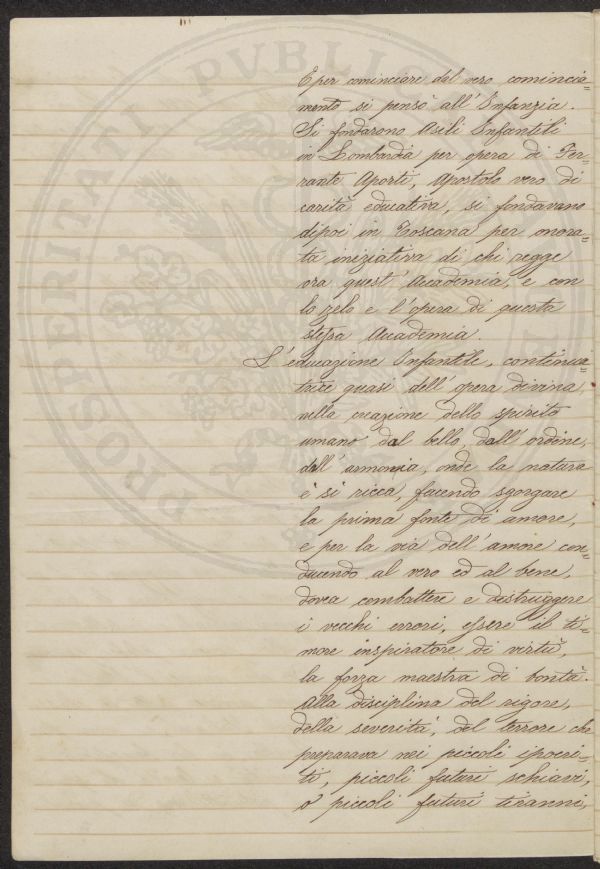 E per cominciare dal vero comincia=
mento si pensò all'Infanzia.
Si fondarono Asili Infantili
in Lombardia per opera di Fer=
rante Aporti, Apostolo vero di
carità educativa, si fondavano
dipoi in Toscana per onora=
ta iniziativa di chi regge
ora quest'Accademia, e con
lo zelo e l'opera di questa
stessa Accademia.
L'educazione Infantile, continua=
trice quasi dell'opera divina,
nella creazione dello spirito
umano dal bello, dall'ordine,
dall'armonia, onde la natura
è si ricca, facendo sgorgare
la prima fonte di amore,
e per la via dell'amore con=
ducendo al vero ed al bene,
dovea combattere e distruggere
i vecchi errori, essere il ti=
more inspiratore di virtù,
la forza maestra di bontà.
Alla disciplina del rigore,
della severità, del terrore che
preparava nei piccoli ipocri=
ti, piccoli futuri schiavi,
o piccoli futuri tiranni,
PROSPERITATI PUBLICAE